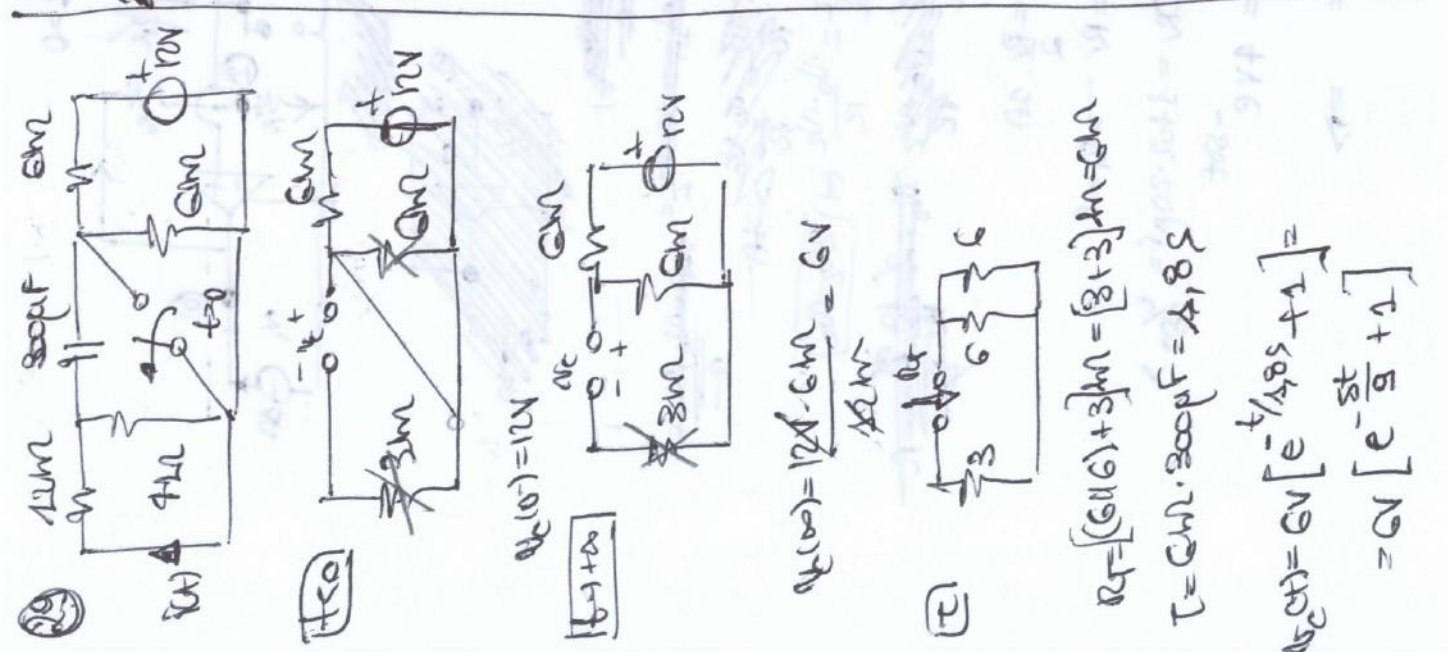 12kΩ
300µF
6kΩ
4kΩ
t=0
6kΩ
+
12V
i(t)
t<0
3kΩ
- vc +
6kΩ
6kΩ
+
12V
vc(0⁻)=12V
t→+∞
3kΩ
vc
- +
6kΩ
6kΩ
+
12V
vc(∞)= 12V·6kΩ / 12kΩ = 6V
τ
3
RT
6
6
RT=[(6//6)+3]kΩ=[3+3]kΩ=6kΩ
τ=6kΩ·300µF=1,8s
vc(t)=6V[e^-t/1,8s+1]=
=6V[e^-5t/9+1]